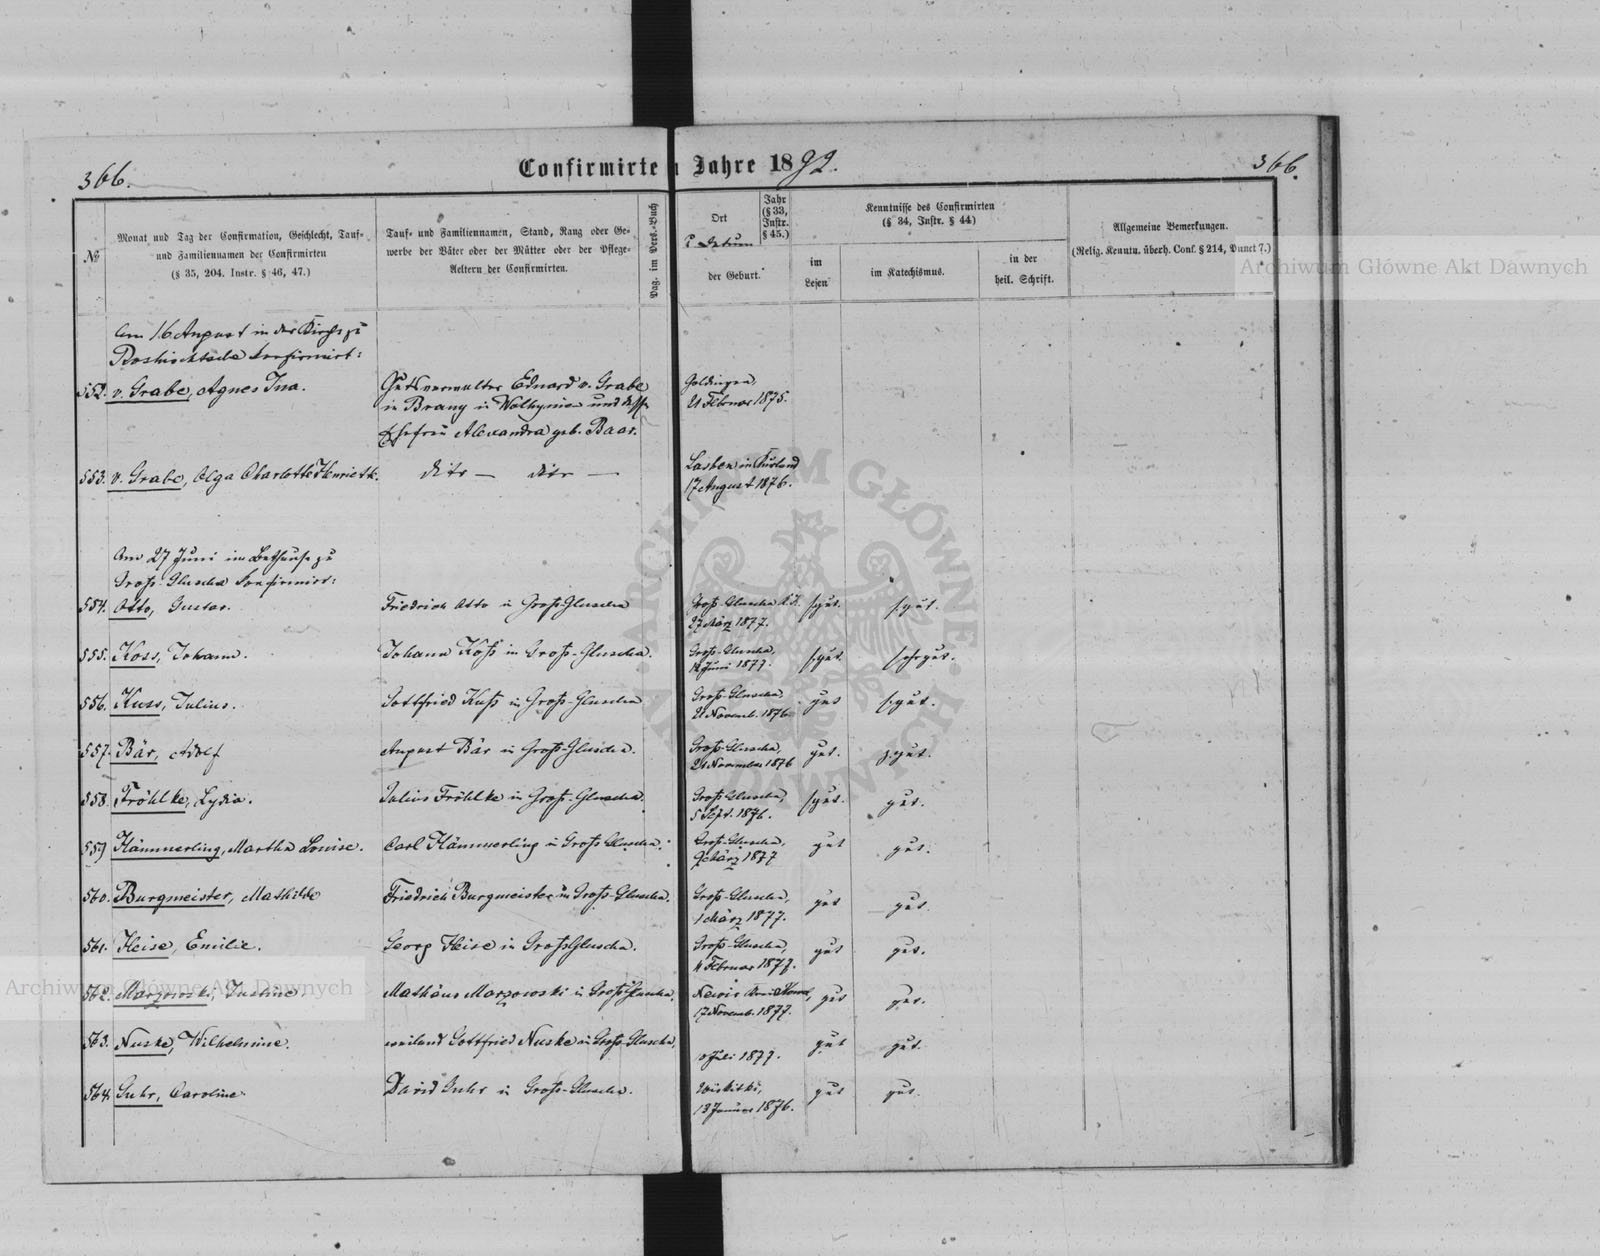 366.
Confirmirte n Jahre 1892.
366.
№
Monat und Tag der Confirmation, Geschlecht, Tauf-
und Familiennamen der Confirmirten
(§ 35, 204. Instr. § 46, 47.)
Tauf- und Familiennamen, Stand, Rang oder Ge-
werbe der Väter oder der Mütter oder der Pflege-
Aeltern der Confirmirten.
Pag. im Pers.-Buch
Ort
Datum
der Geburt.
Jahr
(§ 33,
Instr.
§ 45.)
Kenntnisse des Confirmirten
(§ 34, Instr. § 44)
im
Lesen
im Katechismus.
in der
heil. Schrift.
Allgemeine Bemerkungen.
(Relig. Kenntn. überh. Conf. § 214, Punct 7.)
Archiwum Główne Akt Dawnych
Am 16 August in der Kirche zu
Roshischtsche konfirmirt:
552. v. Grabe, Agnes Ina.
Gutsverwalter Eduard v. Grabe
in Brany in Wolhynien und dessen
Ehefrau Alexandra geb. Baar.
Goldingen,
21 Februar 1875.
553. v. Grabe, Olga Charlotte Henriette.
dito — dito —
in Kurland
17 August 1876.
Am 27 Juni im Bethause zu
Gross-Gluscha konfirmirt:
554. Otto, Gustav.
Friedrich Otto in Gross-Gluscha
Gross-Gluscha
27 März 1877.
s. gut.
s. gut.
555. Koss, Johann.
Johann Koß in Groß-Gluscha.
Groß-Gluscha,
Juni 1877.
s. gut.
sehr gut.
556. Kuss, Julius.
Gottfried Kuß in Groß-Gluscha
Groß-Gluscha,
21 Novemb. 1876
gut
s. gut.
557. Bär, Adolf
August Bär in Groß-Gluscha.
Groß-Gluscha,
21 November 1876
gut.
s. gut.
558. Fröhlke, Lydia.
Julius Fröhlke in Groß-Gluscha.
Groß-Gluscha,
5 Sept. 1876.
s. gut.
gut.
559 Hämmerling, Martha Louise.
Carl Hämmerling in Groß-Gluscha.
Groß-Gluscha,
9 März 1877
gut
gut.
560. Burgmeister, Mathilde
Friedrich Burgmeister in Groß-Gluscha.
Groß-Gluscha,
1 März 1877.
gut
gut.
561. Heise, Emilie.
Georg Heise in Groß Gluscha.
Groß-Gluscha,
4 Februar 1877.
gut
gut.
562. Marzowski, Justine.
Mathäus Marzowski in Groß Gluscha.
17 Novemb. 1877.
gut
gut.
563. Nuske, Wilhelmine.
weiland Gottfried Nuske in Groß-Gluscha.
Juli 1877.
gut
gut.
564. Suhr, Caroline.
David Suhr in Groß-Gluscha.
Wiskitki,
13 Januar 1876.
gut
gut.
Archiwum Główne Akt Dawnych
ARCHIWUM GŁÓWNE AKT DAWNYCH